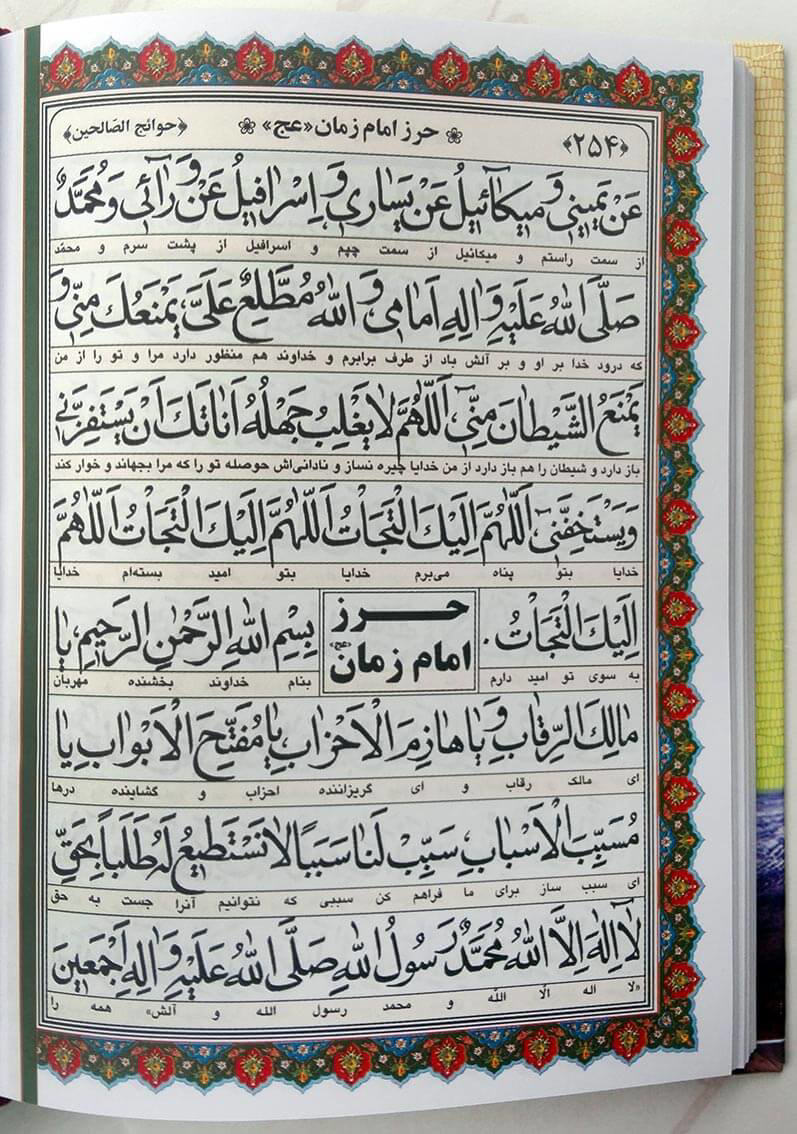 ﴿۲۵۴﴾ ❀ حرز امام زمان «عج» ❀ ﴿حوائج الصّالحین﴾
عَنْ یَمینی وَ میکآئیلُ عَنْ یَساری وَ اِسْرافیلُ عَنْ وَرآئی وَ مُحَمَّدٌ
از سمت راستم و میکائیل از سمت چپم و اسرافیل از پشت سرم و محمّد
صَلَّی اللهُ عَلَیْهِ وَ الِهِ اَمامی وَ اللهُ مُطَّلِعٌ عَلَیَّ یَمْنَعُکَ مِنّی وَ
که درود خدا بر او و بر آلش باد از طرف برابرم و خداوند هم منظور دارد مرا و تو را از من
یَمْنَعُ الشَّیْطانَ مِنّی اَللّهُمَّ لا یَغْلِبُ جَهْلُهُ اَناتَکَ اَنْ یَسْتَفِزَّنی
باز دارد و شیطان را هم باز دارد از من خدایا چیره نساز و نادانی‌اش حوصله تو را که مرا بجهاند و خوار کند
وَ یَسْتَخِفَّنی اَللّهُمَّ اِلَیْکَ الْتَجَأْتُ اَللّهُمَّ اِلَیْکَ الْتَجَأْتُ اَللّهُمَّ
خدایا بتو پناه می‌برم خدایا بتو امید بسته‌ام خدایا
اِلَیْکَ الْتَجَأْتُ .
به سوی تو امید دارم
حرز
امام زمان «عج»
بِسْمِ اللهِ الرَّحْمٰنِ الرَّحیمِ یا
بنام خداوند بخشنده مهربان
مالِکَ الرِّقابِ وَ یا هازِمَ الْاَحْزابِ یا مُفَتِّحَ الْاَبْوابِ یا
ای مالک رقاب و ای گریزاننده احزاب و گشاینده درها
مُسَبِّبَ الْاَسْبابِ سَبِّبْ لَنا سَبَباً لا نَسْتَطیعُ لَهُ طَلَباً بِحَقِّ
ای سبب ساز برای ما فراهم کن سببی که نتوانیم آنرا جست به حق
لا اِلهَ اِلاَّ اللهُ مُحَمَّدٌ رَسُولُ اللهِ صَلَّی اللهُ عَلَیْهِ وَ الِهِ اَجْمَعینَ
«لا اله الّا اللّه و محمد رسول الله و آلش» همه را